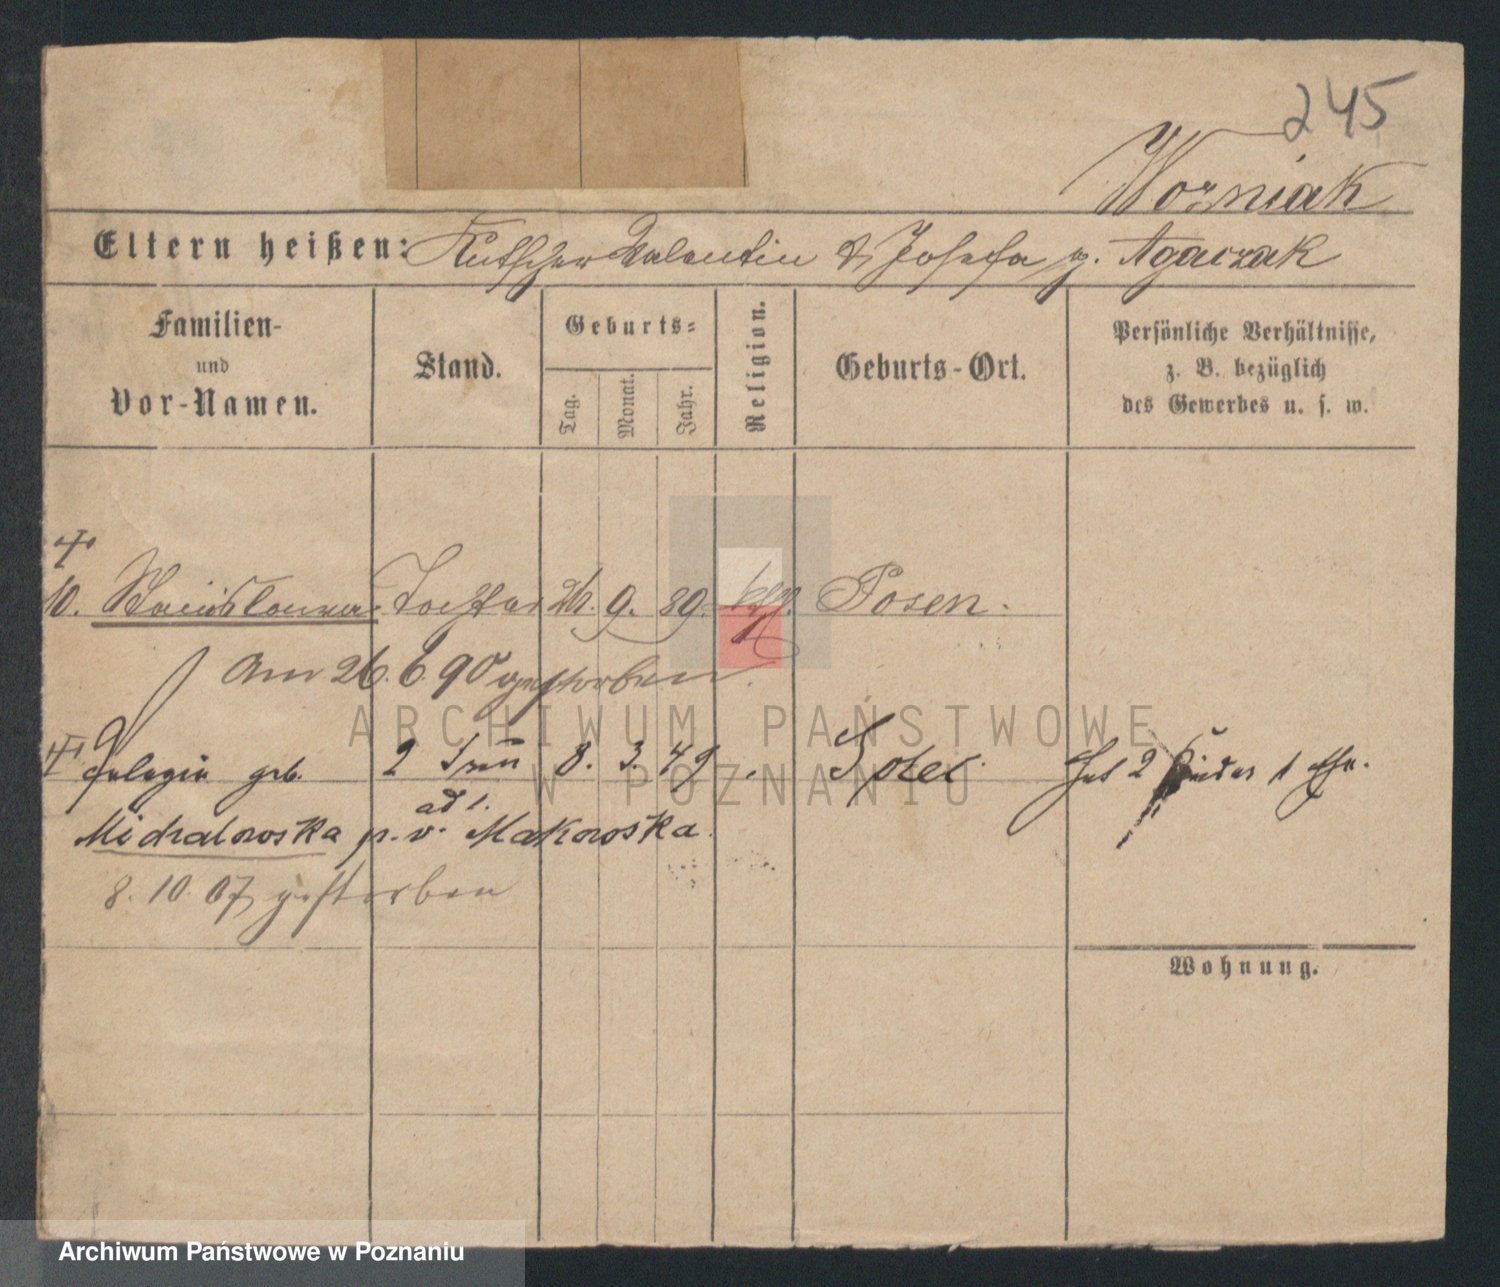 245
Wozniak
Eltern heißen: Kutscher Valentin & Josefa g. Agaczak
Familien-
und
Vor-Namen.
Stand.
Geburts-
Tag.
Monat.
Jahr.
Religion.
Geburts-Ort.
Persönliche Verhältnisse,
z. B. bezüglich
des Gewerbes u. s. w.
10. Stanislawa Tochter 26. 9. 89. kath. Posen.
Am 26. 6. 90 gestorben.
Pelagia geb. 2 Frau 8. 3. 49 Hat 2 Kinder 1 Ehe.
ad 1.
Michalowska p. v. Makowska.
8. 10. 07 gestorben
Wohnung.
ARCHIWUM PAŃSTWOWE
W POZNANIU
Archiwum Państwowe w Poznaniu